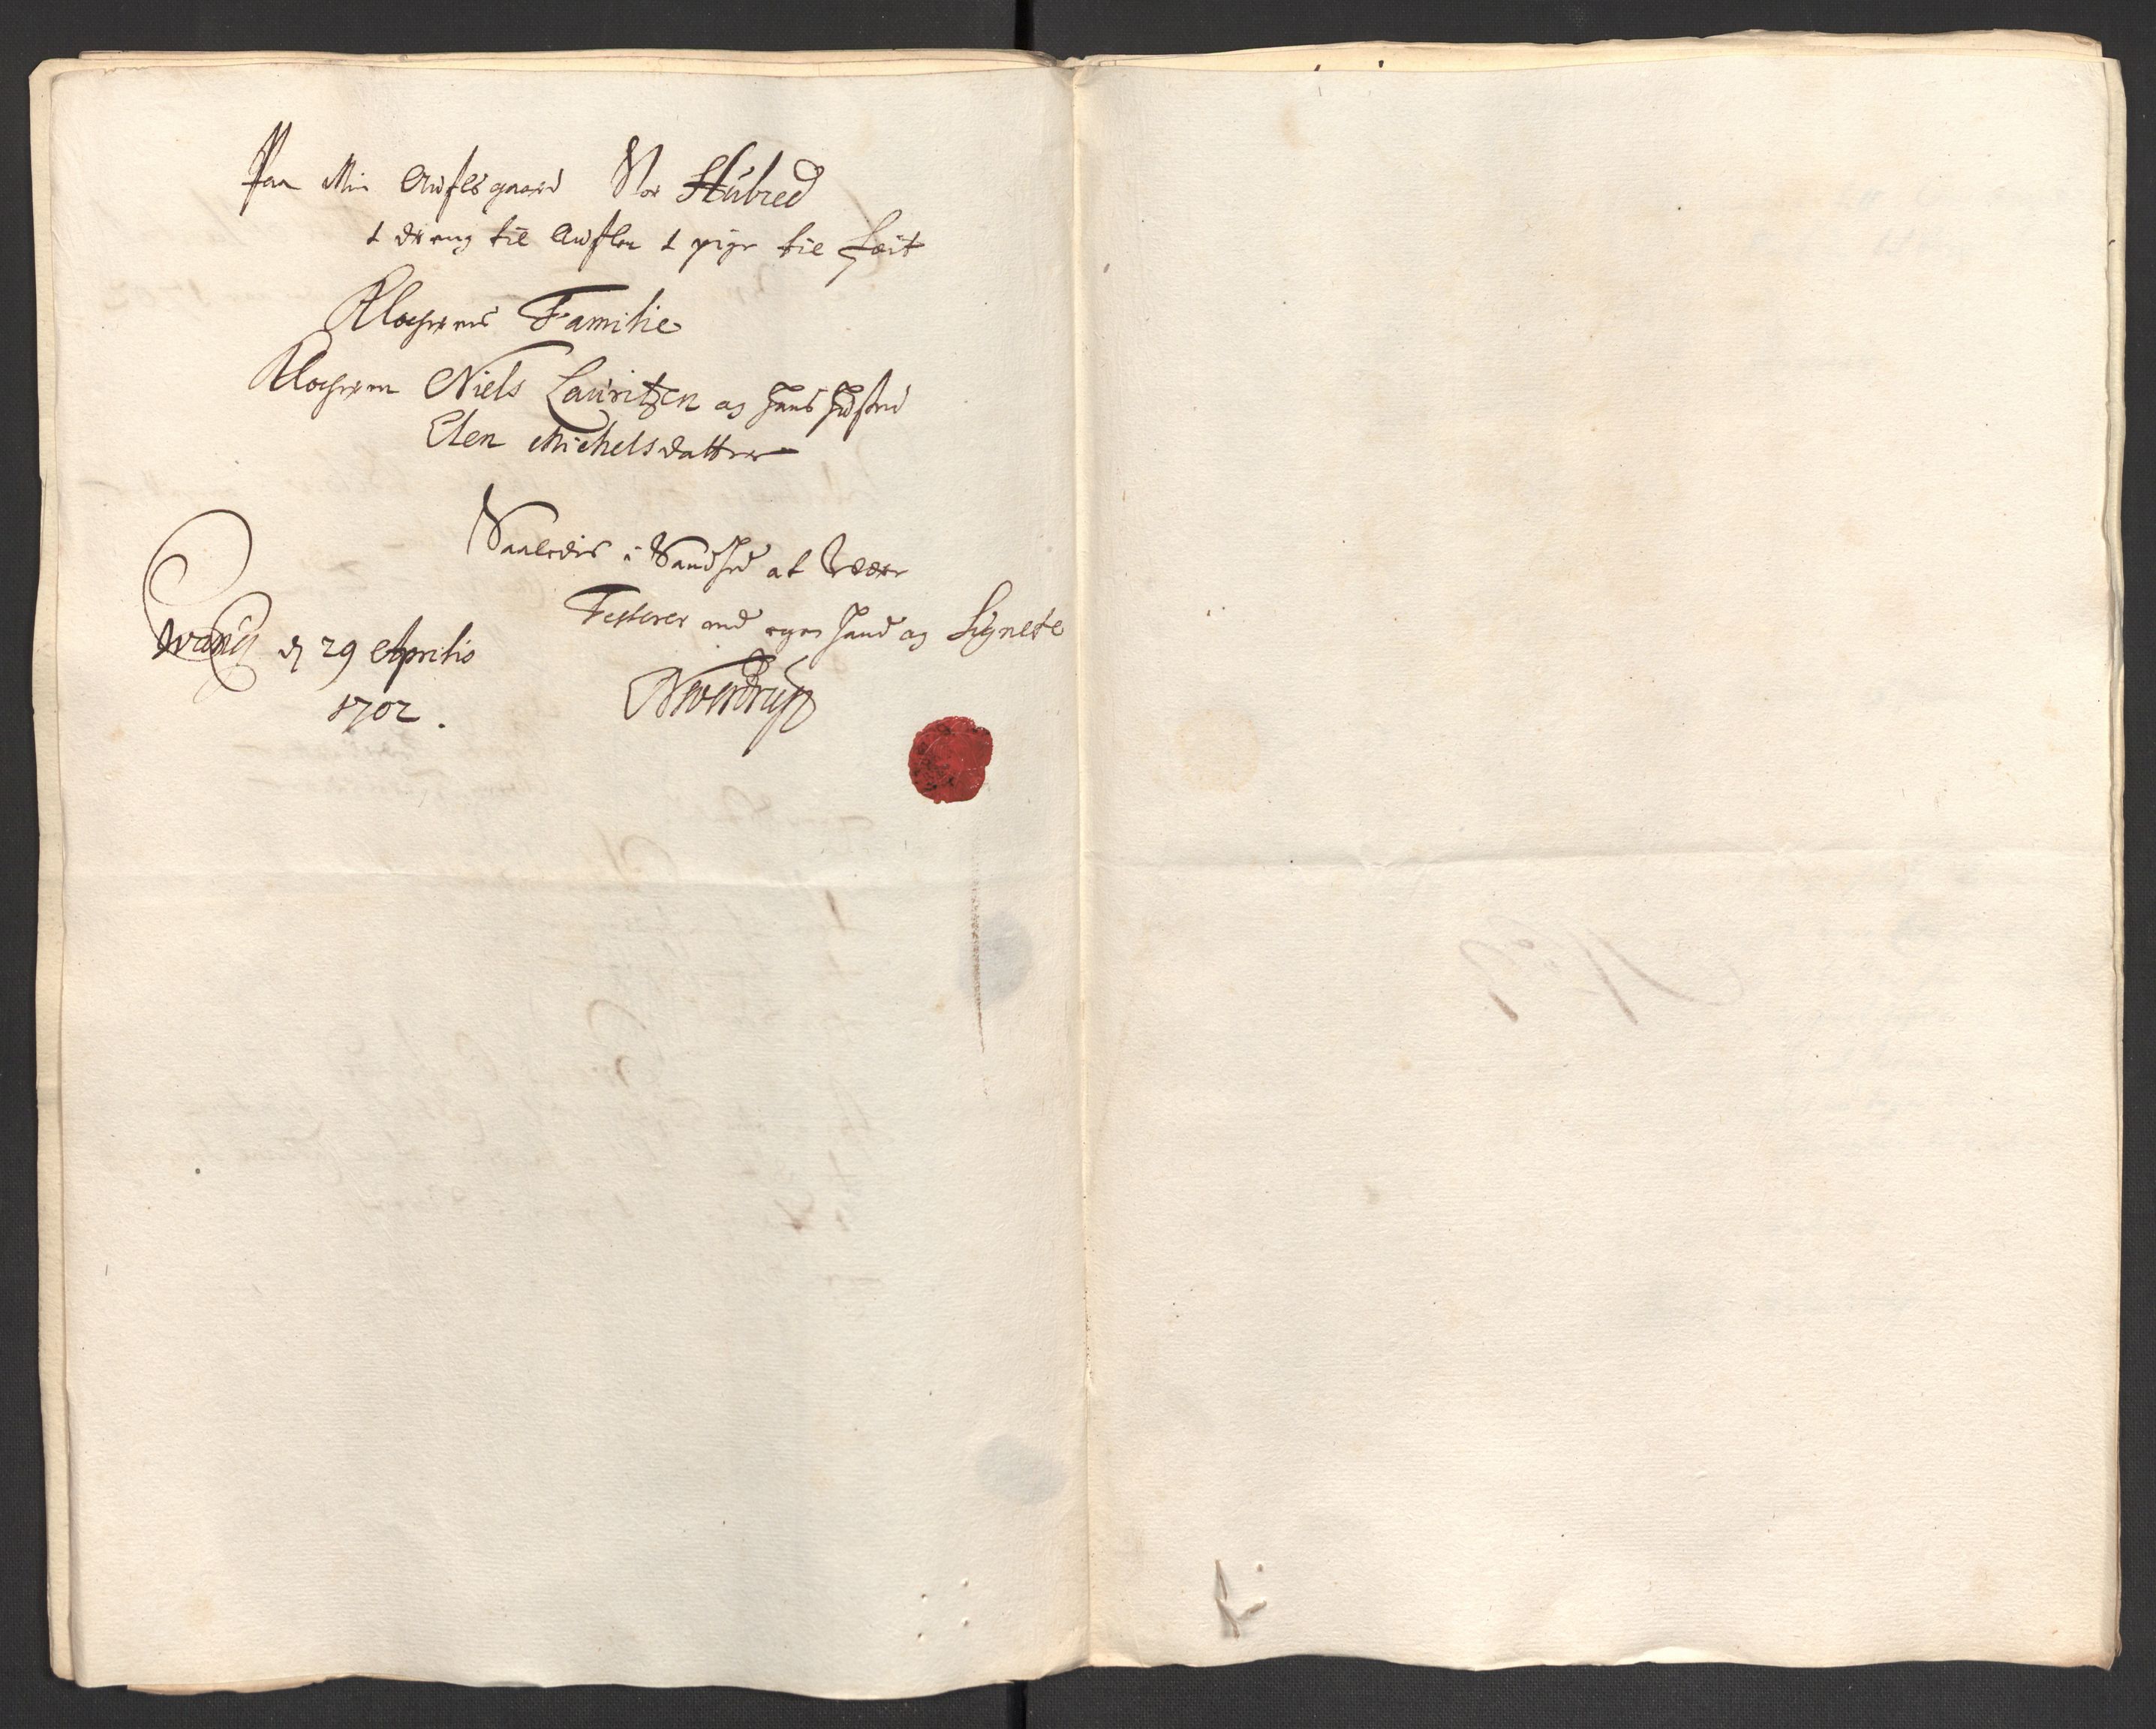 Paa Min Aufls gaard Nor Stubred
1 dreng til Auflen 1 pige til fæit
Klocherens Familie
Klocheren Niels Lauritzen og hans hustrud
Elen Michelsdatter
Saaledis i Sandhed at være
Testerer med egen haand og Signete
Wang d 29 Aprilis
1702.
Neverdrup